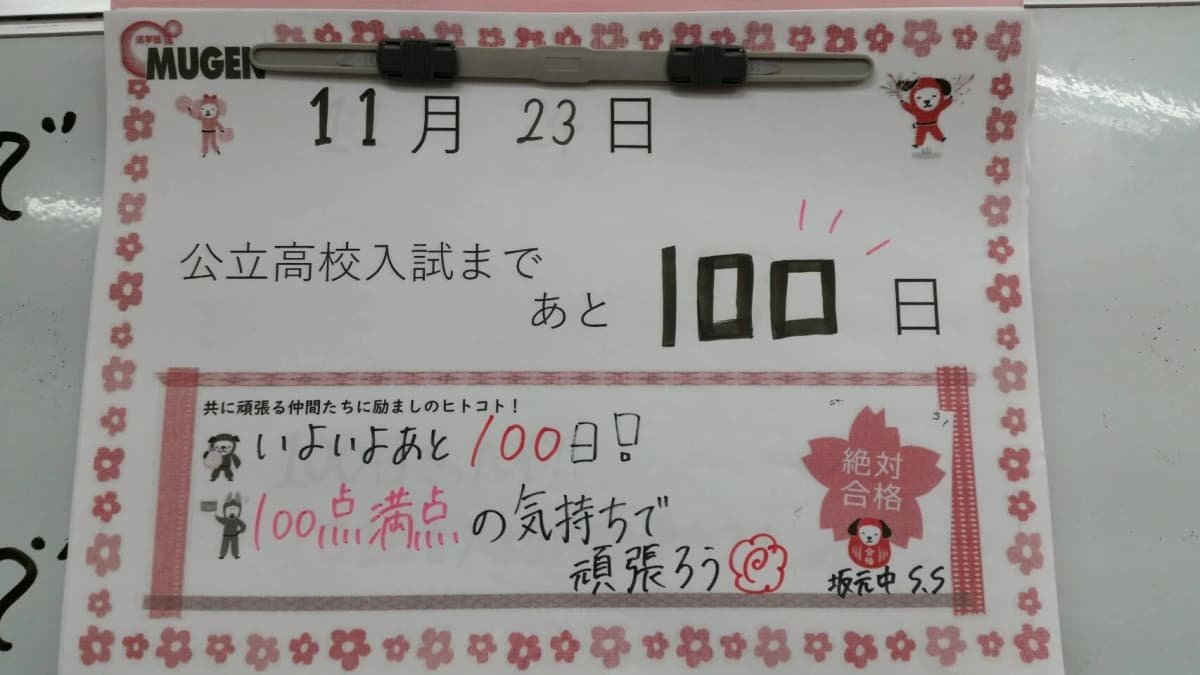 英学館
MUGEN
11月 23日
公立高校入試まで
あと 100 日
共に頑張る仲間たちに励ましのヒトコト!
いよいよあと100日!
100点満点の気持ちで
頑張ろう
絶対
合格
合格
坂元中 S.S